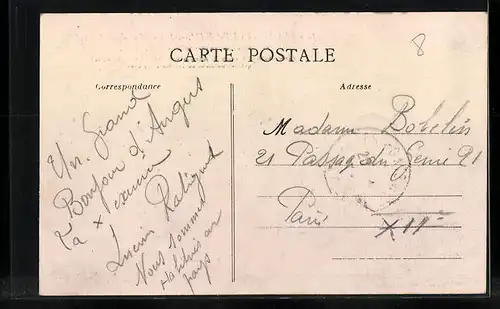 8
CARTE POSTALE
Correspondance
Adresse
Un Grand
Bonjour d'Angers
Ta
Lucien
Nous sommes
au
pays
Madame Bobelin
21 Passage du Genie 21
Paris
XII